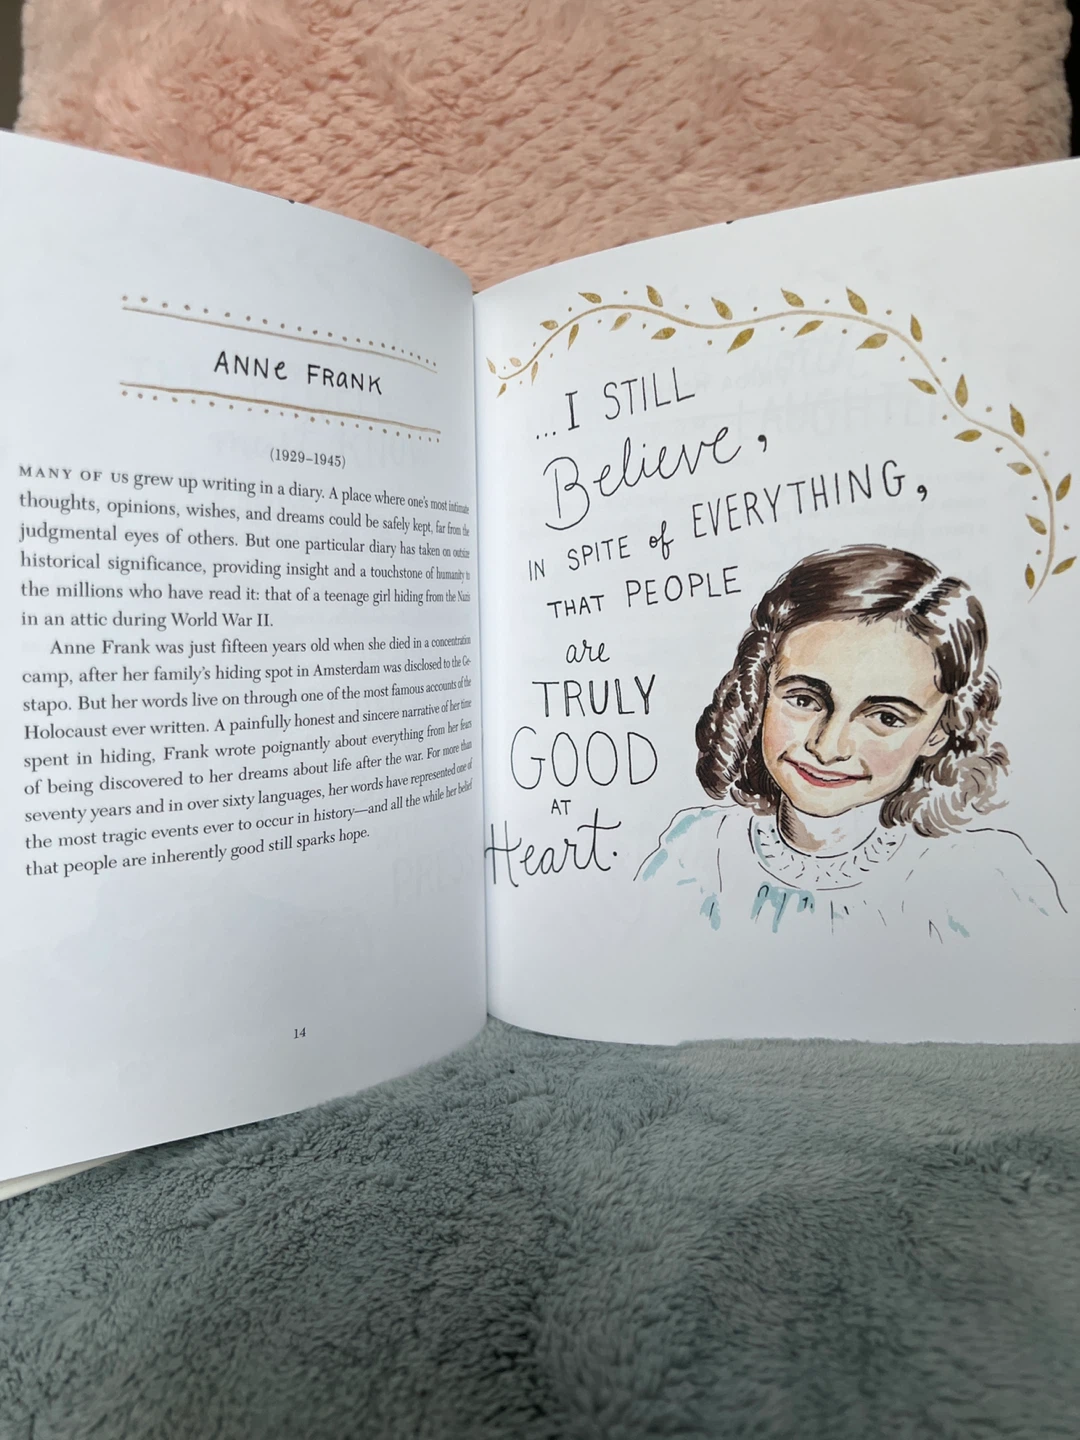 ANNe FRaNK
(1929–1945)
MANY OF US grew up writing in a diary. A place where one's most intimate
thoughts, opinions, wishes, and dreams could be safely kept, far from the
judgmental eyes of others. But one particular diary has taken on outsize
historical significance, providing insight and a touchstone of humanity to
the millions who have read it: that of a teenage girl hiding from the Nazis
in an attic during World War II.
Anne Frank was just fifteen years old when she died in a concentration
camp, after her family's hiding spot in Amsterdam was disclosed to the Ge-
stapo. But her words live on through one of the most famous accounts of the
Holocaust ever written. A painfully honest and sincere narrative of her time
spent in hiding, Frank wrote poignantly about everything from her fears
of being discovered to her dreams about life after the war. For more than
seventy years and in over sixty languages, her words have represented one of
the most tragic events ever to occur in history—and all the while her belief
that people are inherently good still sparks hope.
14
...I STILL
Believe,
IN SPITE of EVERYTHING,
THAT PEOPLE
are
TRULY
GOOD
AT
Heart.